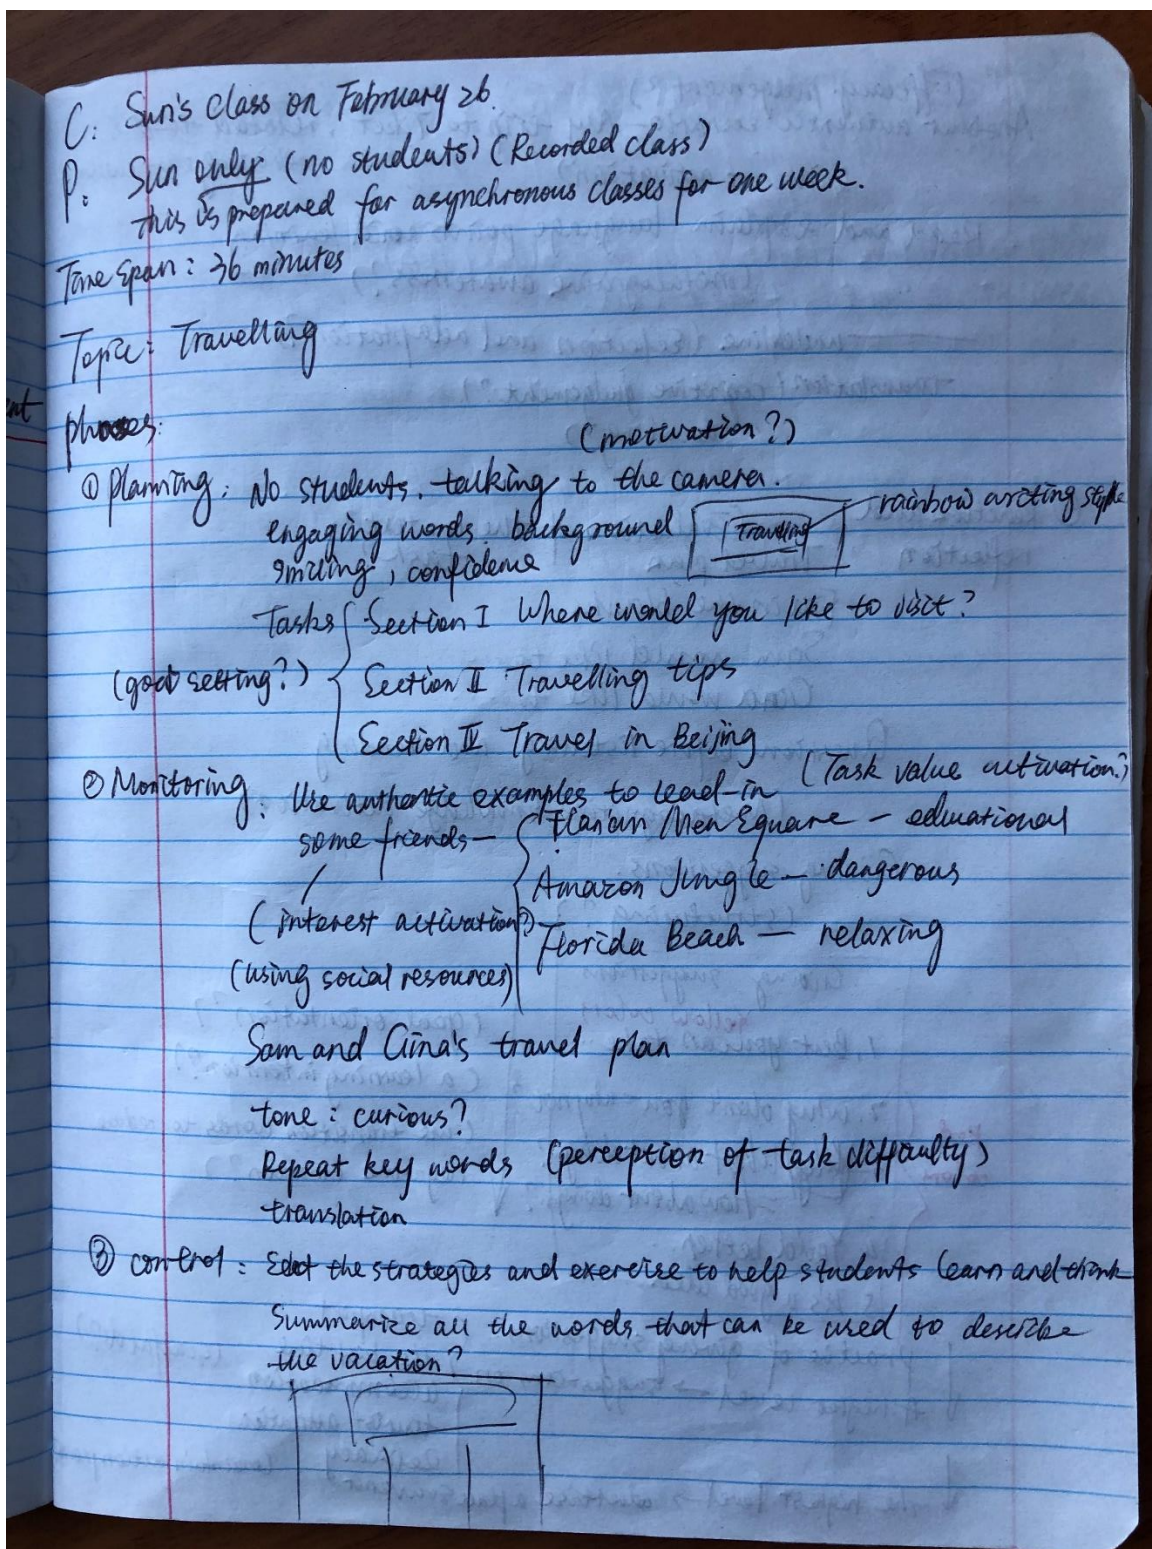 C: Sun's class on February 26.
P: Sun only (no students) (Recorded class)
this is prepared for asynchronous classes for one week.
Time Span: 36 minutes
Topic: Travelling
phases:
(motivation?)
① planning: No students, talking to the camera.
engaging words, background Travelling rainbow writing style
smiling, confidence
Tasks Section I Where would you like to visit?
(goal setting?) Section II Travelling tips
Section IV Travel in Beijing
② Monitoring: Use authentic examples to lead-in (Task value activation?)
some friends — Tian'an Men Square — educational
Amazon Jungle — dangerous
(interest activation?)
Florida Beach — relaxing
(using social resources)
Sam and Gina's travel plan
tone: curious?
Repeat key words (perception of task difficulty)
translation
③ control: the strategies and exercise to help students learn and think
Summarize all the words that can be used to describe
the vacation?